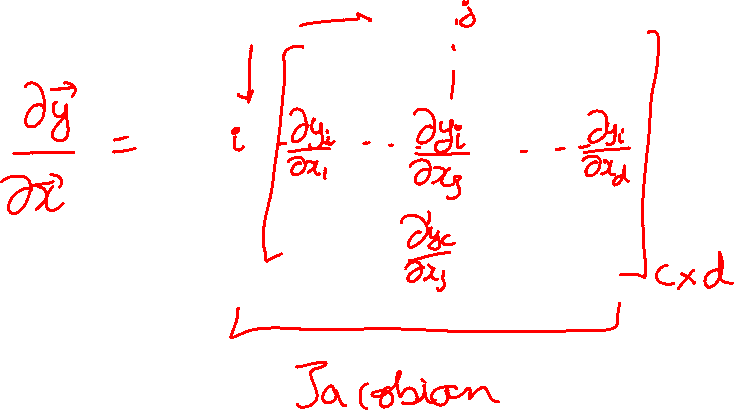 j
∂y⃗/∂x⃗ = i [ ∂yᵢ/∂x₁ ·· ∂yᵢ/∂xⱼ ··· ∂yᵢ/∂x_d
∂y_c/∂xⱼ ] c×d
Jacobian